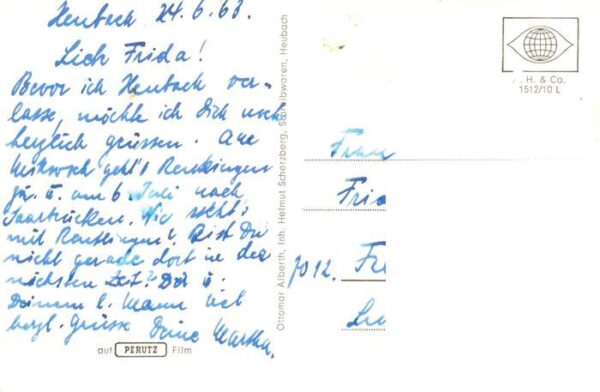 Heubach 24.6.63.
Lieb Frida!
Bevor ich Heubach ver-
lasse, möchte ich Dich noch
herzlich grüssen. Am
Mittwoch geht's Reutlingen
zu. u. am 6. Juli nach
Saarbrücken. Wie steht's
mit Reutlingen? Bist Du
nicht gerade dort in der
nächsten Zeit? Dir u.
Deinem l. Mann viel
herzl. Grüsse Deine Martha.
auf PERUTZ Film
Ottomar Alberth, Inh. Helmut Scherzberg, Schreibwaren, Heubach
H. & Co.
1512/10 L
Frau
Frid
7012.